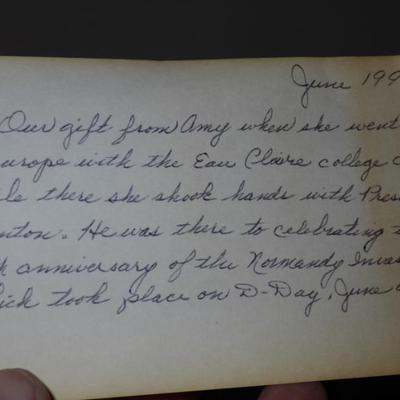 June 199
Our gift from Amy when she went
urope with the Eau Claire college
le there she shook hands with Pres
nton. He was there to celebrating
h anniversary of the Normandy Invas
ich took place on D-Day, June